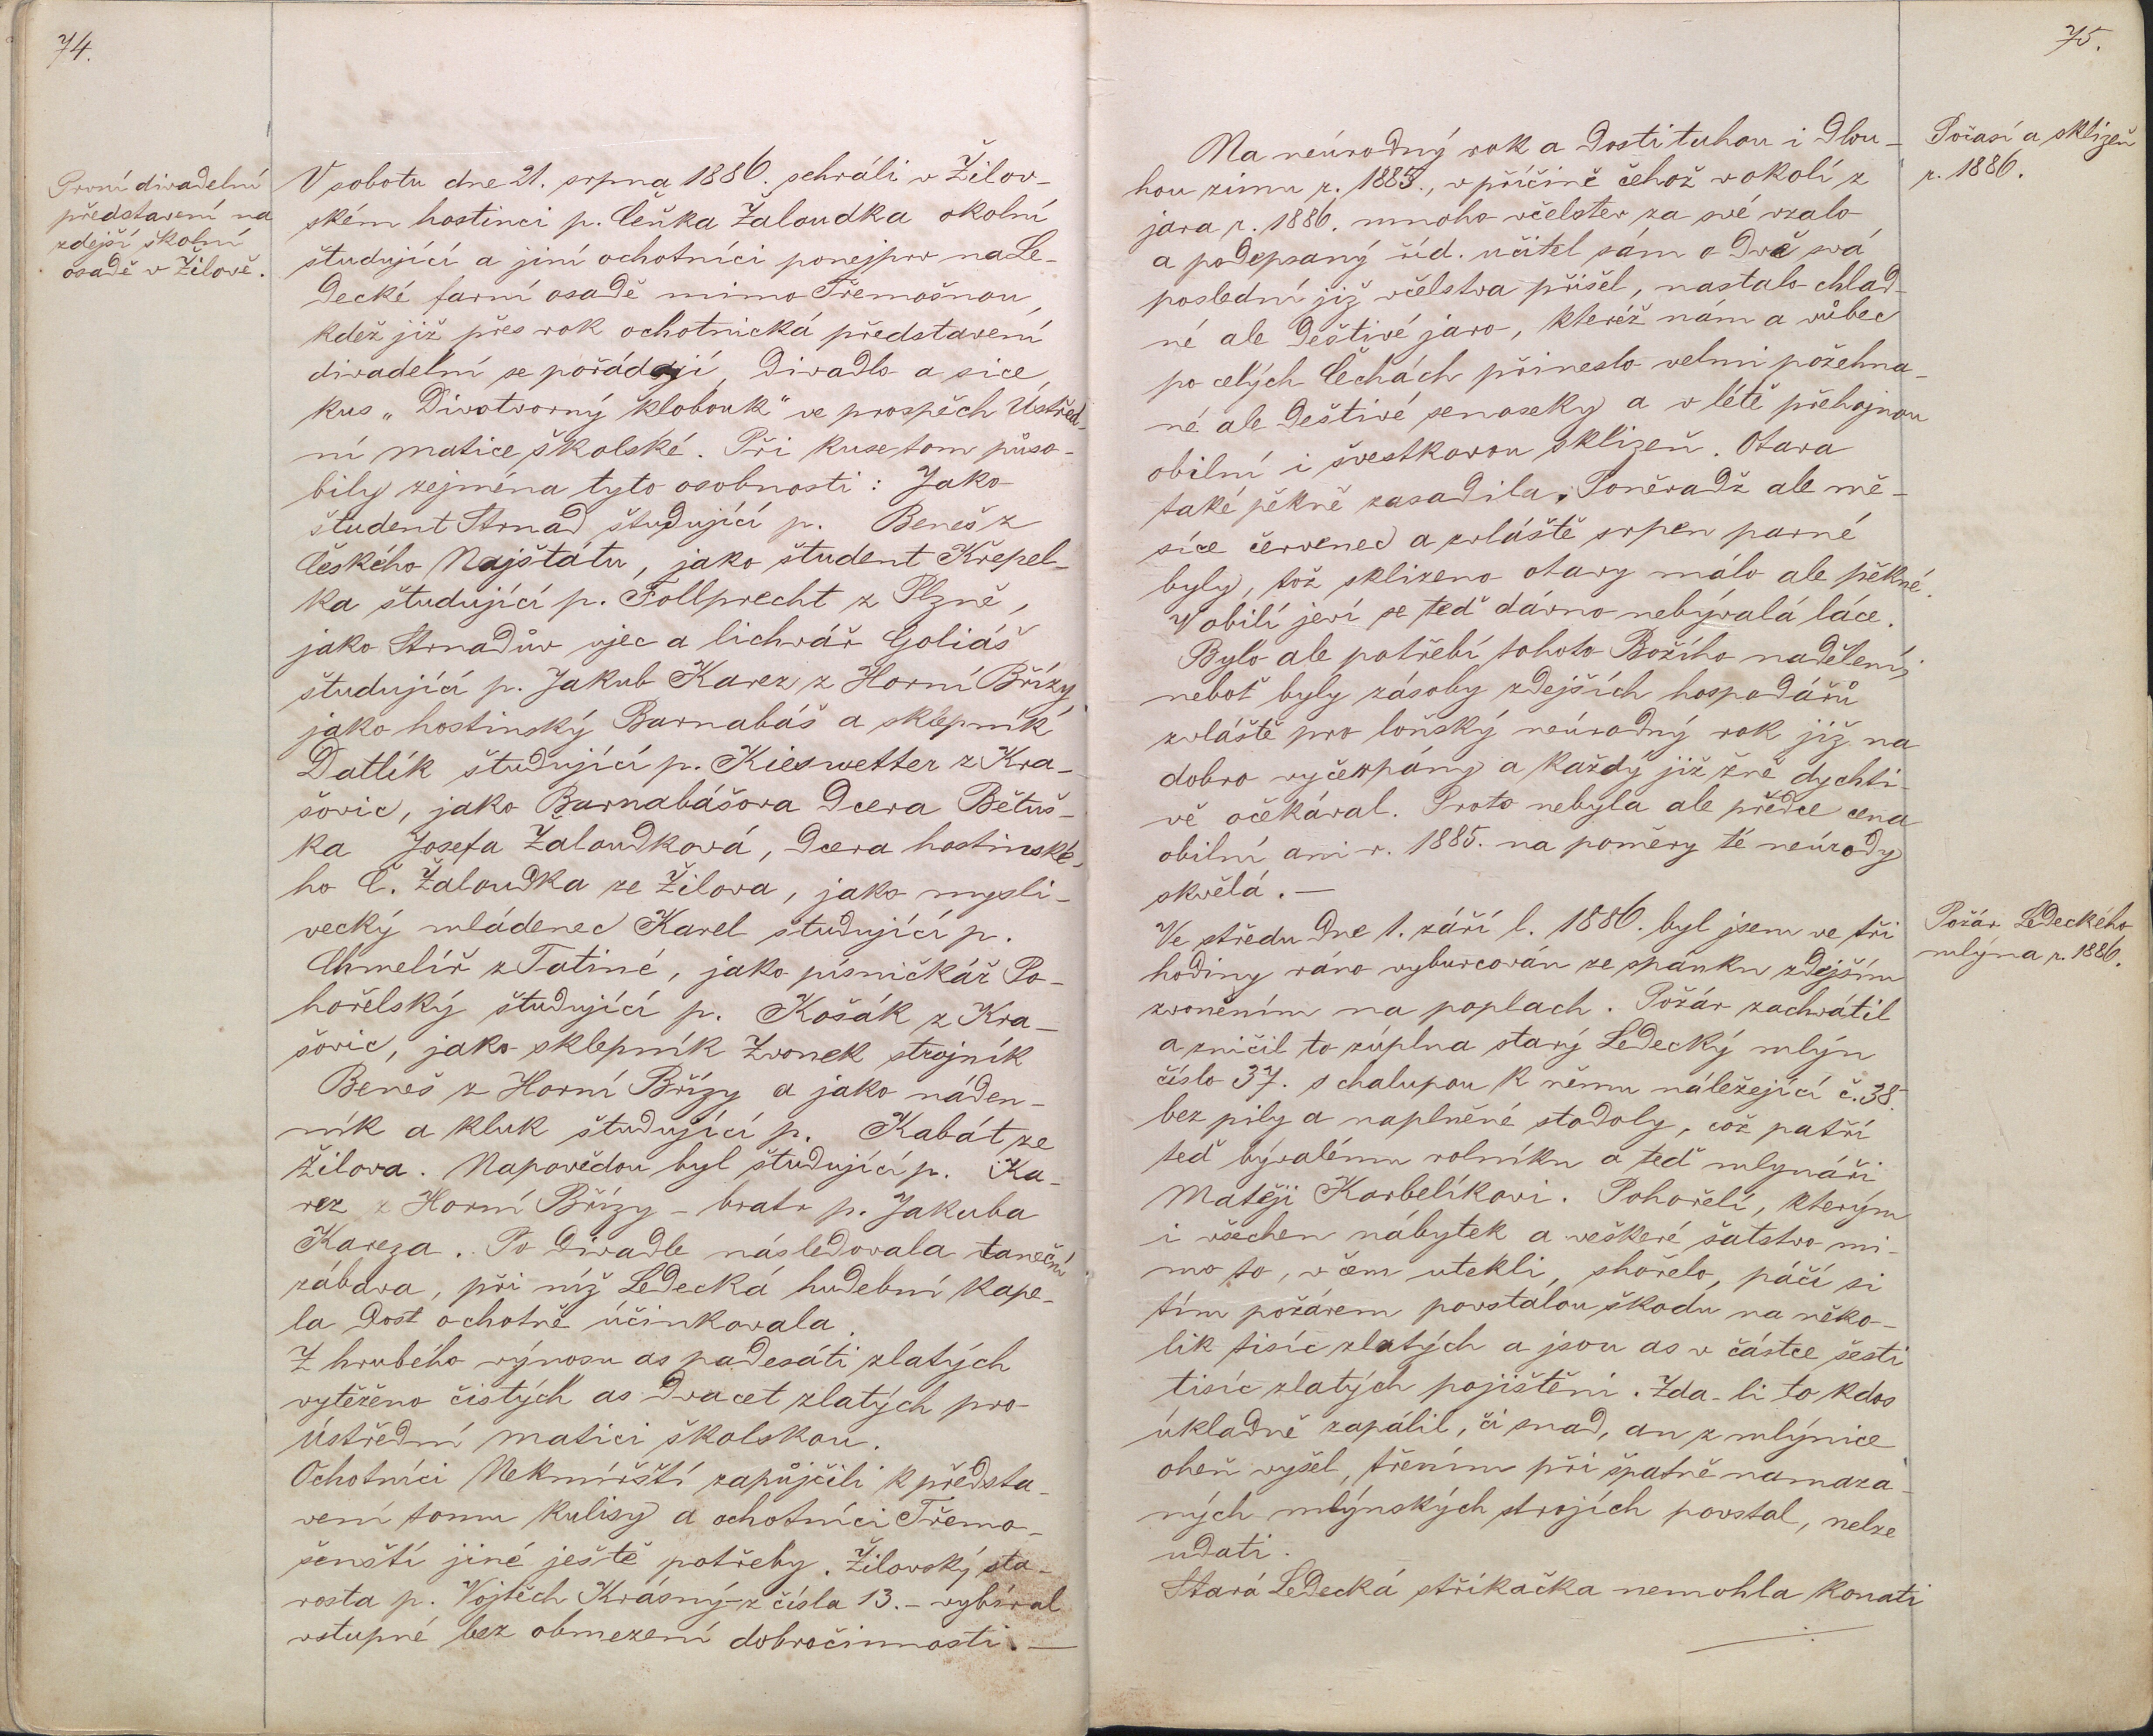 74.
První divadelní
představení na
zdejší školní
osadě v Žilově.
V sobotu dne 21. srpna 1886. sehráli v Žilov-
ském hostinci p. Čeňka Žaloudka okolní
študující a jiní ochotníci ponejprv na Le-
decké farní osadě mimo Třemošnou,
kdež již přes rok ochotnická představení
divadelní se pořádají, divadlo a sice
kus „Divotvorný klobouk“ ve prospěch Ústřed-
ní matice školské. Při kuse tom půso-
bily zejména tyto osobnosti: Jako
študent Strnad študující p. Beneš z
Českého Najštátu, jako študent Křepel-
ka študující p. Follprecht z Plzně,
jako Strnadův ujec a lichvář Goliáš
študující p. Jakub Karez z Horní Břízy,
jako hostinský Barnabáš a sklepník
Datlík študující p. Kieswetter z Kra-
šovic, jako Barnabášova dcera Bětuš-
ka Josefa Žaloudková, dcera hostinské-
ho Č. Žaloudka ze Žilova, jako mysli-
vecký mládenec Karel študující p.
Chmelíř z Tatiné, jako písničkář Po-
hořelský študující p. Košák z Kra-
šovic, jako sklepník Zvonek strojník
Beneš z Horní Břízy a jako náden-
ník a kluk študující p. Kabát ze
Žilova. Napovědou byl študující p. Ka-
rez z Horní Břízy - bratr p. Jakuba
Kareza. Po divadle následovala taneční
zábava, při níž Ledecká hudební kape-
la dost ochotně účinkovala.
Z hrubého výnosu as padesáti zlatých
vytěženo čistých as dvacet zlatých pro
Ústřední matici školskou.
Ochotníci Nekmířští zapůjčili k předsta-
vení tomu kulisy a ochotníci Třemo-
šenští jiné ještě potřeby. Žilovský sta-
rosta p. Vojtěch Krásný z čísla 13. - vybíral
vstupné bez obmezení dobročinnosti. —
75.
Počasí a sklizeň
r. 1886.
Na neúrodný rok a dosti tuhou i dlou-
hou zimu r. 1885., v příčině čehož v okolí z
jara r. 1886. mnoho včelstev za své vzalo
a podepsaný říd. učitel sám o dvě svá
poslední již včelstva přišel, nastalo chlad-
né ale deštivé jaro, kteréž nám a vůbec
po celých Čechách přineslo velmi požehna-
né ale deštivé senoseky a v létě přehojnou
obilní i švestkovou sklizeň. Otava
také pěkně zasadila. Poněradž ale mě-
síce červenec a zvláště srpen parné
byly, tož sklizeno otavy málo ale pěkné.
V obilí jeví se teď dávno nebývalá láce.
Bylo ale potřebí tohoto Božího nadělení,
neboť byly zásoby zdejších hospodářů
zvláště pro loňský neúrodný rok již na
dobro vyčerpány a každý již žně dychti-
vě očekával. Proto nebyla ale předce cena
obilní ani r. 1885. na poměry té neúrody
skvělá. —
Požár Ledeckého
mlýna r. 1886.
Ve středu dne 1. září l. 1886. byl jsem ve tři
hodiny ráno vyburcován ze spánku zdejším
zvoněním na poplach. Požár zachvátil
a zničil to zúplna starý Ledecký mlýn
číslo 37. s chalupou k němu náležející č. 38.
bez pily a naplněné stodoly, což patří
teď bývalému rolníku a teď mlynáři
Matěji Korbelíkovi. Pohořelí, kterým
i všechen nábytek a veškeré šatstvo mi-
mo to, v čem utekli, shořelo, páčí si
tím požárem povstalou škodu na něko-
lik tisíc zlatých a jsou as v částce šesti
tisíc zlatých pojištěni. Zda-li to kdos
úkladně zapálil, či snad, an z mlýnice
oheň vyšel, třením při špatně namaza-
ných mlýnských strojích povstal, nelze
udati.
Stará Ledecká stříkačka nemohla konati